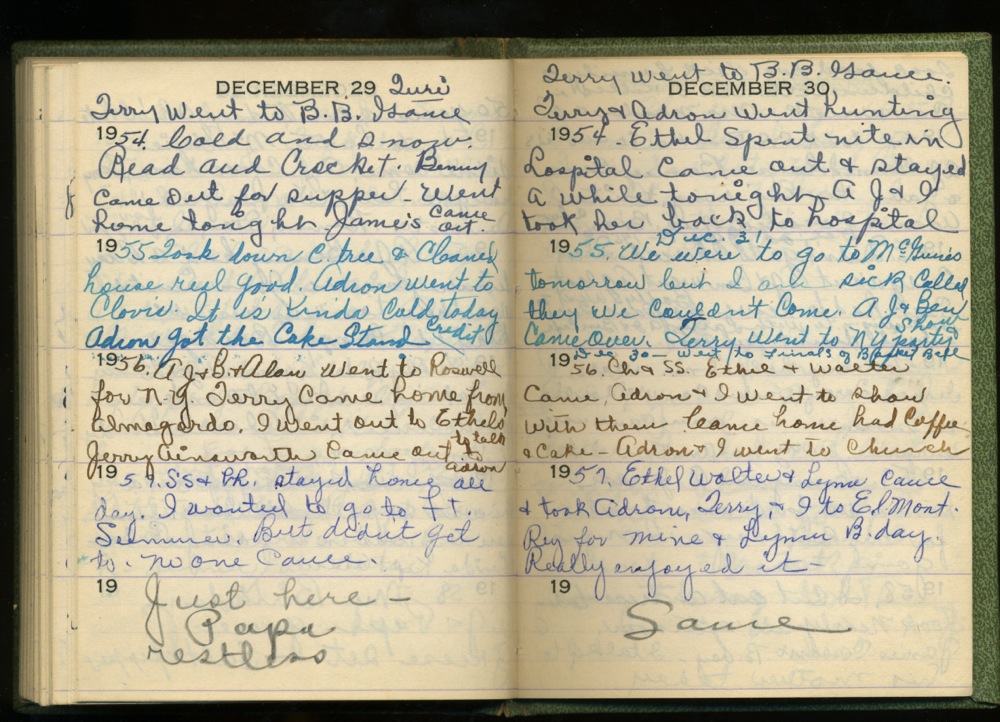 DECEMBER 29
Terry Went to B.B. Game
1954. Cold and snow.
Read and Crocket. Benny
Came Out for supper - Went
home tonight James's Came
out.
1955 Took down C. tree. & Cleaned
house real good. Adron went to
Clovis. It is Kinda Cold today
Adron got the Cake Stand Credit
1956. A J & B & Alan Went to Roswell
for N.Y. Terry Came home from
Elmagordo. I Went out to Ethels
to talk
Jerry Ainsworth Came out to
Adron
1957. SS & Ch. stayed home all
day. I wanted to go to Ft.
Sumner. But didn't get
to. no one Came.
19
Just here -
Papa
restless
Terry went to B.B. Game.
DECEMBER 30
Terry & Adron Went hunting
1954. Ethel Spent nite in
Hospital Came out & stayed
a while tonight A J & I
took her back to hospital
Dec. 31
1955. We were to go to McGuires
tomorrow but I am sick Called
they We Couldn't Come. A J & Ben
Came Over. Terry Went to N Y party
Show
Dec 30 - Went to Finals of Basket Ball
1956. Ch & SS. Ethel & Walter
Came, Adron & I Went to show
With them Came home had Coffee
& Cake - Adron & I went to Church
1957. Ethel Walter & Lynn Came
& took Adron, Terry, & I to El Mont.
Rey for mine & Lynn B.day.
Really enjoyed it -
19
Same